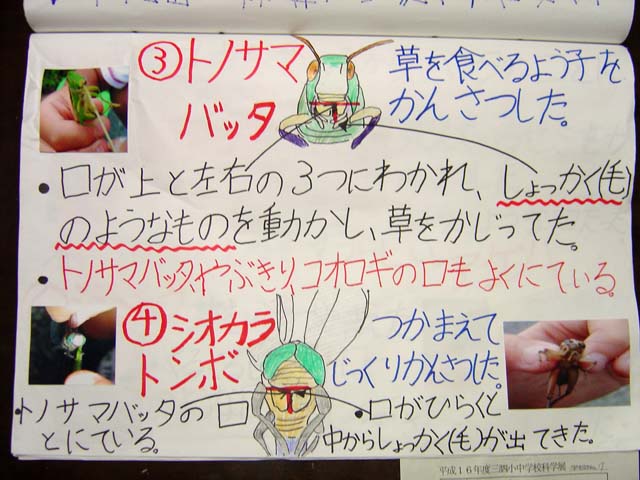 ③トノサマ
バッタ
草を食べるよう子を
かんさつした。
・口が上と左右の3つにわかれ、しょっかく(毛)
のようなものを動かし、草をかじってた。
・トノサマバッタ、やぶきり、コオロギの口もよくにている。
④シオカラ
トンボ
つかまえて
じっくりかんさつした。
・トノサマバッタの口
とにている。
・口がひらくと
中からしょっかく(毛)が出てきた。
平成16年度三泗小中学校科学展